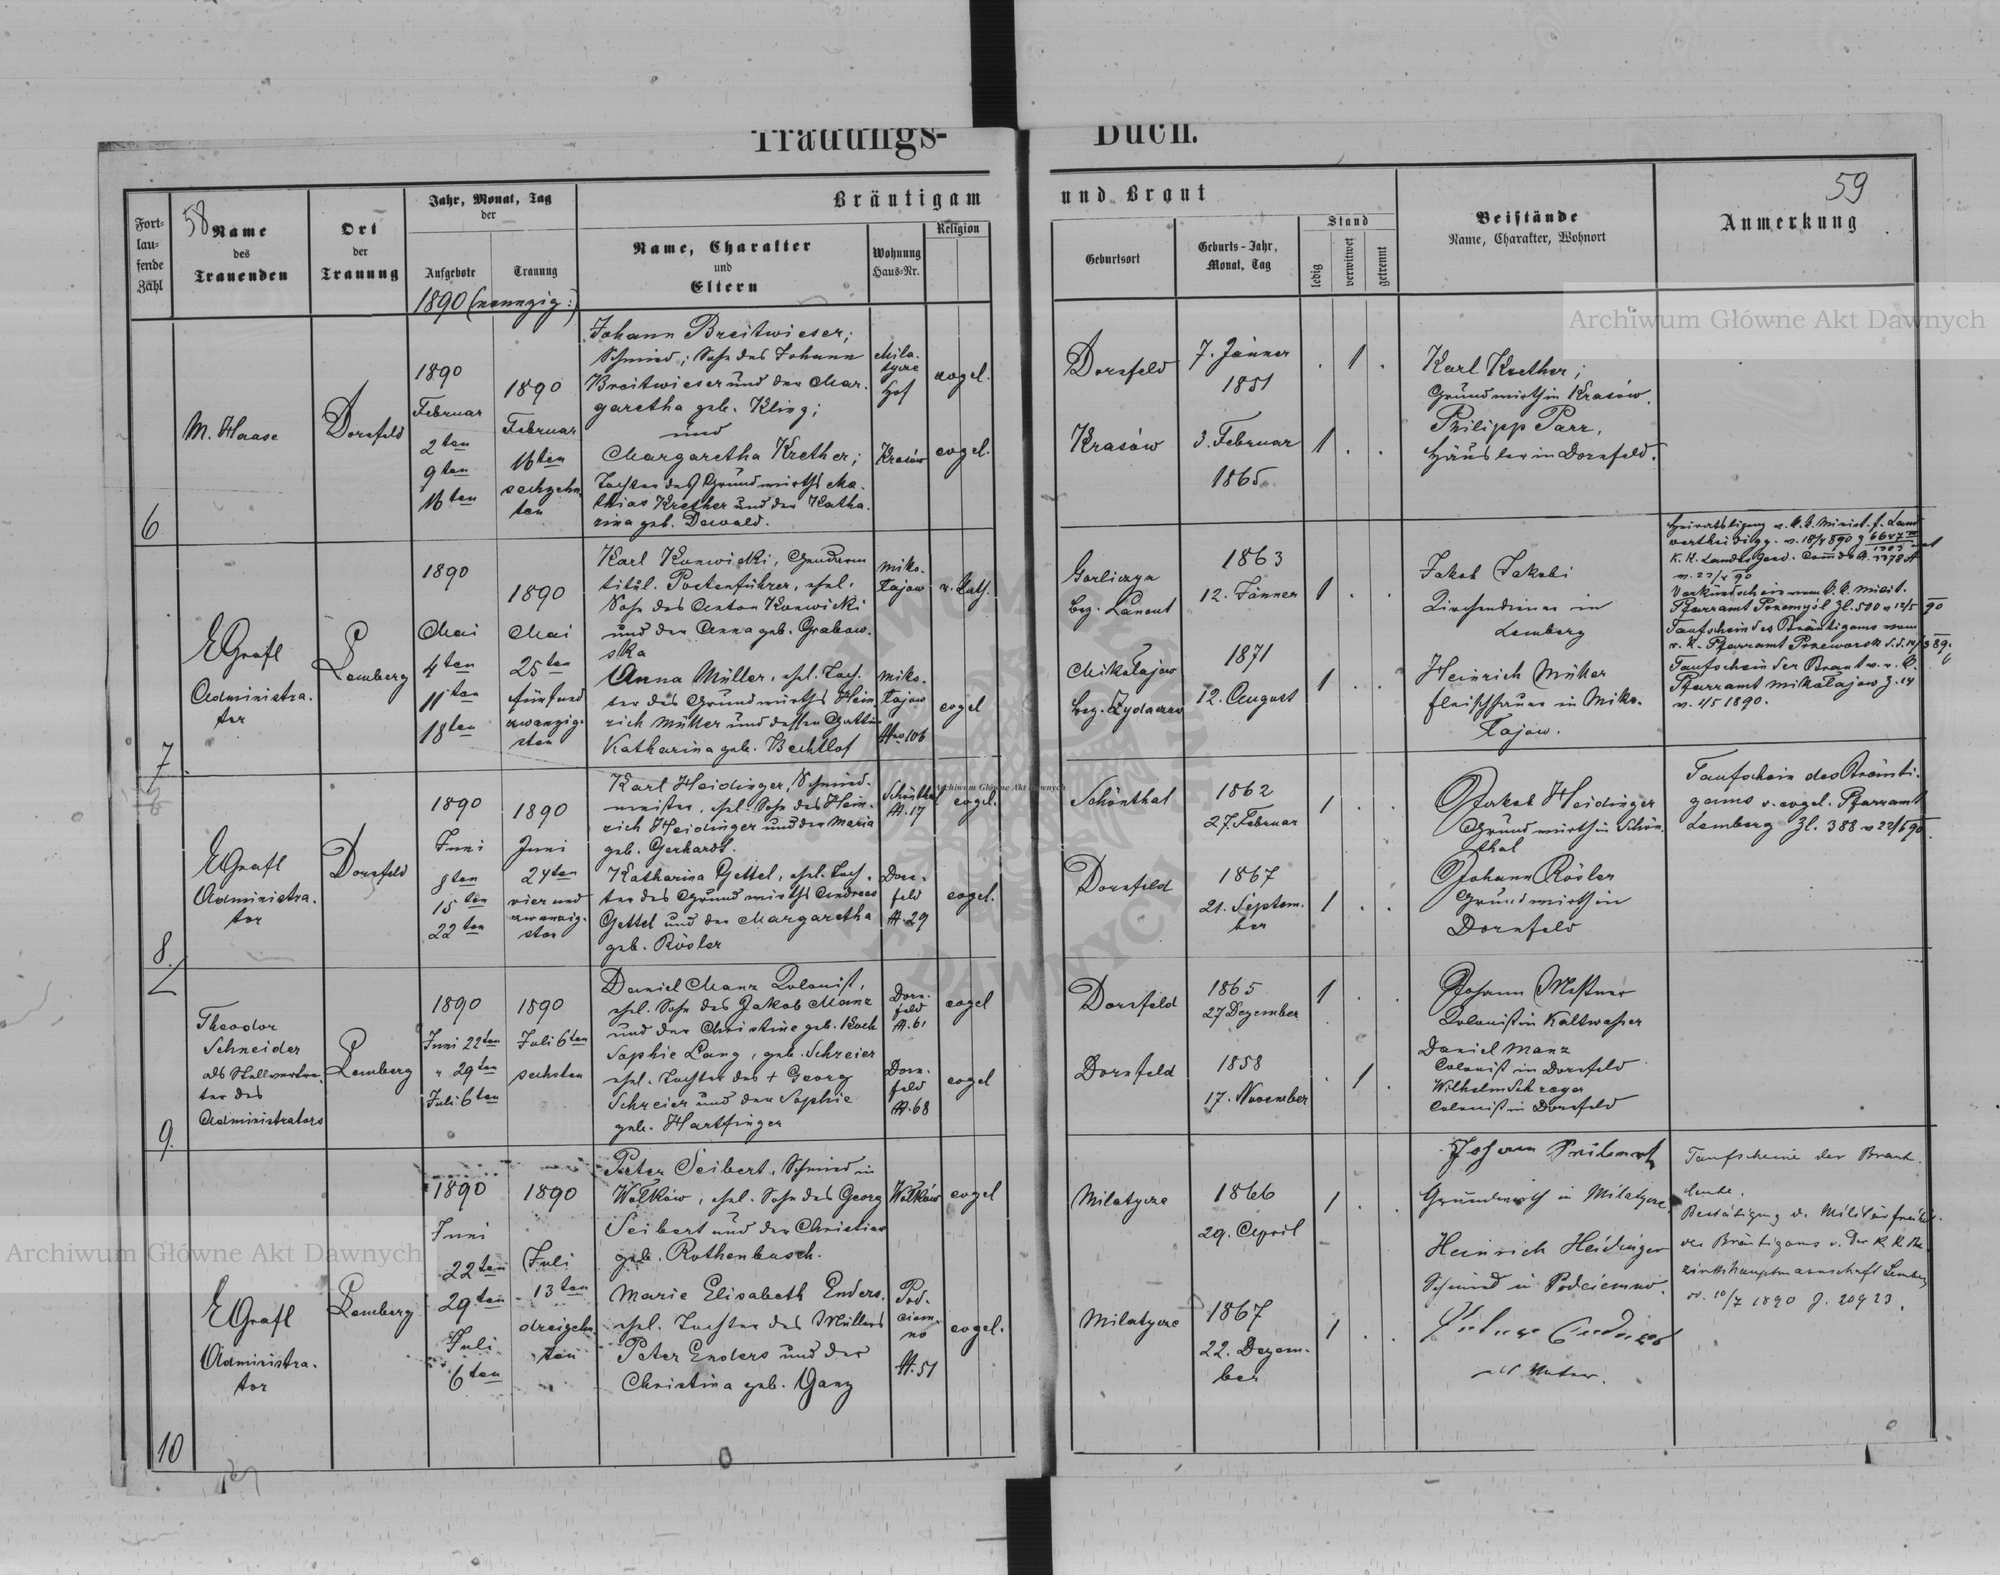 Trauungs-
Buch.
58
59
Fort-
lau-
fende
Zahl
Name
des
Trauenden
Ort
der
Trauung
Jahr, Monat, Tag
der
Aufgebote
Trauung
Bräutigam
und Braut
Name, Charakter
und
Eltern
Wohnung
Haus-Nr.
Religion
Geburtsort
Geburts-Jahr,
Monat, Tag
Stand
ledig
verwitwet
getrennt
Beistände
Name, Charakter, Wohnort
Anmerkung
1890 (neunzig:)
6
M. Haase
Dornfeld
1890
Februar
2ten
9ten
16ten
1890
Februar
16ten
sechzehn
ten
Johann Breitwieser;
Schmied; Sohn des Johann
Breitwieser und der Mar-
garetha geb. Kling;
und
Margaretha Krether;
Tochter des Grundwirths Ma-
thias Krether und der Katha-
rina geb. Dewald.
Mila-
tycze
Hof
Krasów
evgel.
evgel.
Dornfeld
7. Jänner
1851
Krasów
3. Februar
1865
Karl Krether;
Grundwirth in Krasów.
Philipp Parr,
Häusler in Dornfeld.
7
E Grafl
Administra-
tor
Lemberg
1890
Mai
4ten
11ten
18ten
1890
Mai
25ten
fünfund
zwanzig-
sten
Karl Konwicki, Gendarm
titul. Postenführer, ehel.
Sohn des Anton Konwicki
und der Anna geb. Grabow-
ska
Anna Müller, ehel. Toch-
ter des Grundwirths Hein-
rich Müller und dessen Gattin
Katharina geb. Bechtlof
Miko-
łajow
Miko-
łajow
No 106
r. kath.
evgel
Gorliczyn
bez. Łancut
1863
12. Jänner
Mikołajow
bez. Zydaczow
1871
12. August
Jakob Jakobi
Kirchendiener in
Lemberg
Heinrich Müller
Fleischhauer in Miko-
łajow.
K. K. Landes Gend. Comdo
Verkündschein vom k. k. Milit.
Pfarramt Przemyśl Zl. 500 v 12/5 90
Taufschein des Bräutigams vom
r. k. Pfarramt Przeworsk
Taufschein der Braut v. r. k.
Pfarramt Mikołajow Z. 14
v. 1/5 1890.
8.
E Grafl
Administra-
tor
Dornfeld
1890
Juni
8ten
15ten
22ten
1890
Juni
24ten
vier und
zwanzig-
sten
Karl Heidinger, Schmied-
meister, ehel. Sohn des Hein-
rich Heidinger und der Maria
geb. Gerhardt.
Katharina Gettel, ehel. Toch-
ter des Grundwirths Andreas
Gettel und der Margaretha
geb. Rösler
Schönthal
N. 17
Dorn-
feld
N. 29
evgel.
evgel.
Schönthal
1862
27. Februar
Dornfeld
1867
21. Septem-
ber
Jakob Heidinger
Grundwirth in Schön-
thal
Johann Rösler
Grundwirth in
Dornfeld
Taufschein des Bräuti-
gams v. evgel. Pfarramt
Lemberg Zl. 388 v 22/6 90.
9.
Theodor
Schneider
als Stellvertre-
ter des
Administrators
Lemberg
1890
Juni 22ten
" 29ten
Juli 6ten
1890
Juli 6ten
sechsten
Daniel Manz Kolonist,
ehel. Sohn des Jakob Manz
und der Christine geb. Koch
Sophie Lang, geb. Schreier
ehel. Tochter des + Georg
Schreier und der Sophie
geb. Hartfinger
Dorn-
feld
N. 61
Dorn-
feld
N. 68
evgel
evgel
Dornfeld
1865
27 Dezember
Dornfeld
1858
17. November
Johann Meßner
Kolonist in Kaltwasser
Daniel Manz
Colonist in Dornfeld
Wilhelm Schreger
Colonist in Dornfeld
10
E Grafl
Administra-
tor
Lemberg
1890
Juni
22ten
29ten
Juli
6ten
1890
Juli
13ten
dreizehn-
ten
Peter Seibert, Schmied in
Wołków, ehel. Sohn des Georg
Seibert und der Christine
geb. Rothenbusch.
Marie Elisabeth Enders,
ehel. Tochter des Müllers
Peter Enders und der
Christina geb. Ganz
Wołków
Pod-
ciem-
no
N. 51
evgel
evgel.
Milatycze
1866
29. April
Milatycze
1867
22. Dezem-
ber
Johann
Grundwirth in Milatycze
Heinrich Heidinger
Schmied in Podciemno.
als Vater.
Taufscheine der Braut-
leute.
Bestätigung d. Militärfreiheit
des Bräutigams v. der k. k. Be-
zirkshauptmannschaft Lemberg
v. 10/7 1890 Z. 20923.
Archiwum Główne Akt Dawnych
Archiwum Główne Akt Dawnych
Archiwum Główne Akt Dawnych